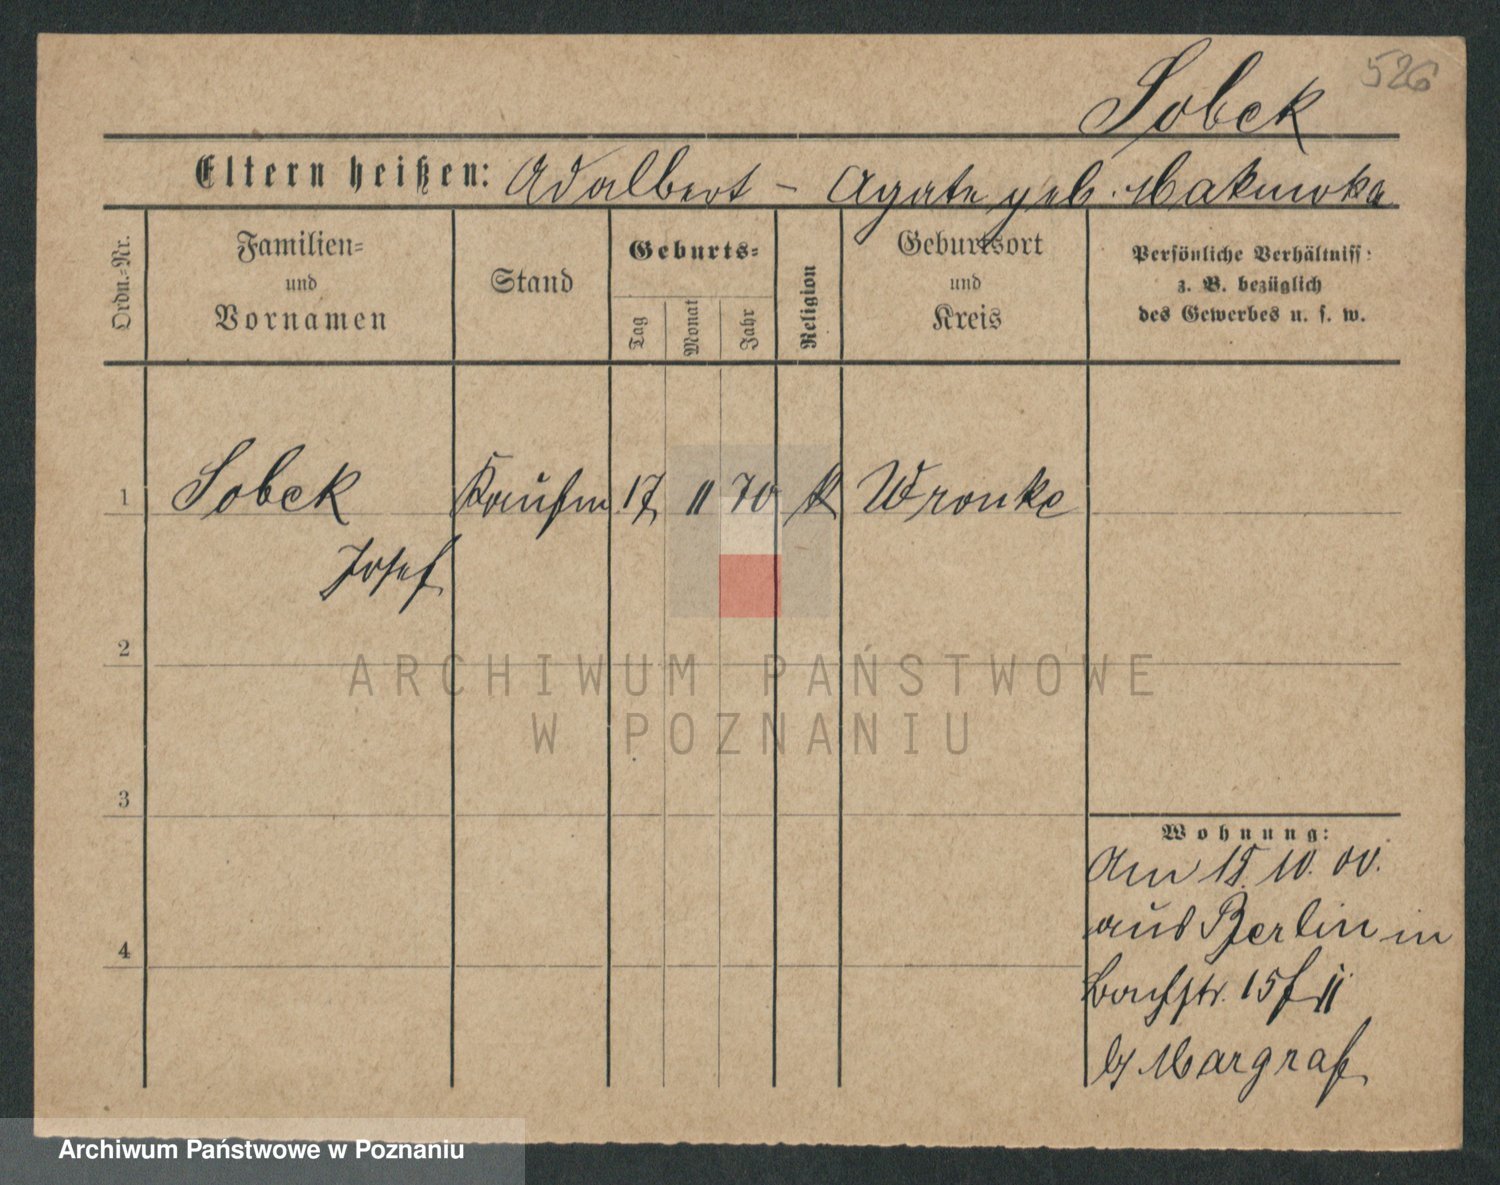 526
Sobek
Eltern heißen: Adalbert - Agate geb.
Ordn.-Nr.
Familien-
und
Vornamen
Stand
Geburts-
Tag
Monat
Jahr
Religion
Geburtsort
und
Kreis
Persönliche Verhältniss:
z. B. bezüglich
des Gewerbes u. s. w.
1 Sobek Kaufm 17 11 70 k Wronke
Josef
2
ARCHIWUM PAŃSTWOWE
W POZNANIU
3
Wohnung:
Am 15. 10. 00.
aus Berlin in
4
Bachstr. 15 f II
b/ Margraf
Archiwum Państwowe w Poznaniu